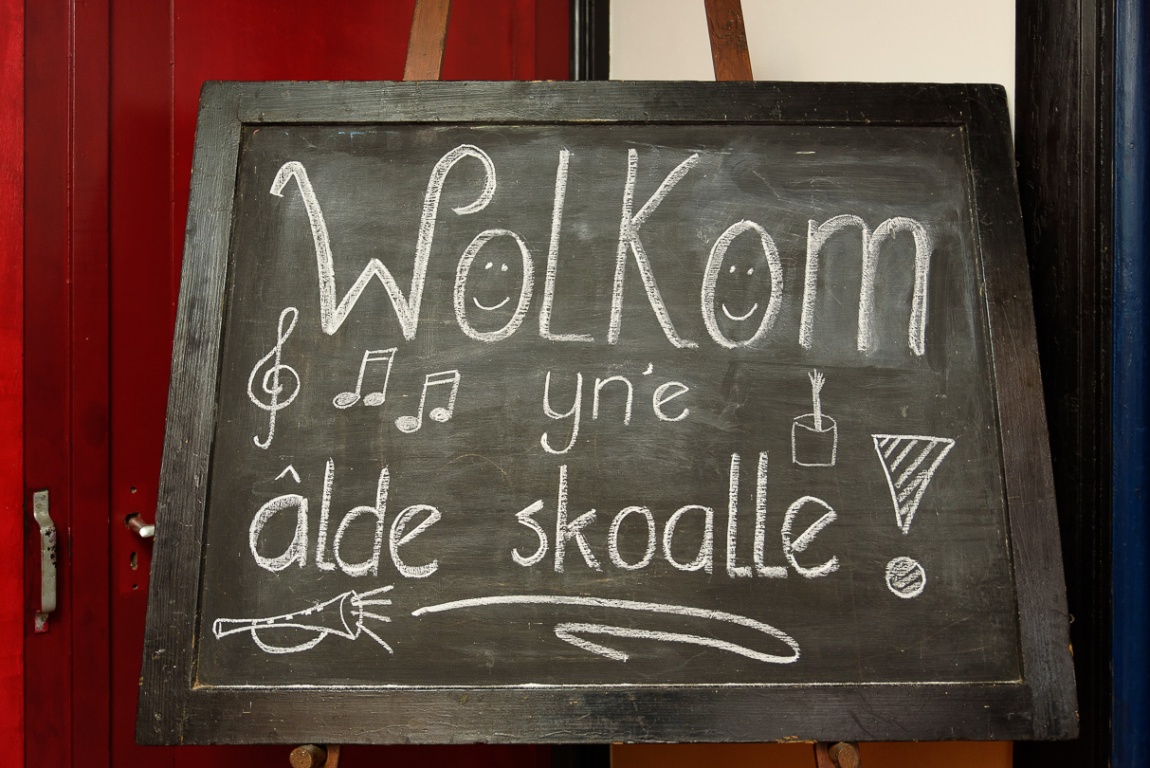 Wolkom
yn'e
âlde skoalle!